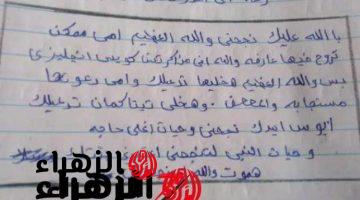 باالله عليك نجحنى والله العظيم امى ممكن
تروح فيها عارفه والله انى مذكرتش كويس انجليزى
بس والله العظيم هخليها تدعيلك وامى دعوتها
مستجابه والله وهخلى تيتا كمان تدعيلك
ابوس ايدك نجحنى وحيات اغلى حاجه
وحيات النبى لتنجحنى
هموت والله
الزهراء
الزهراء